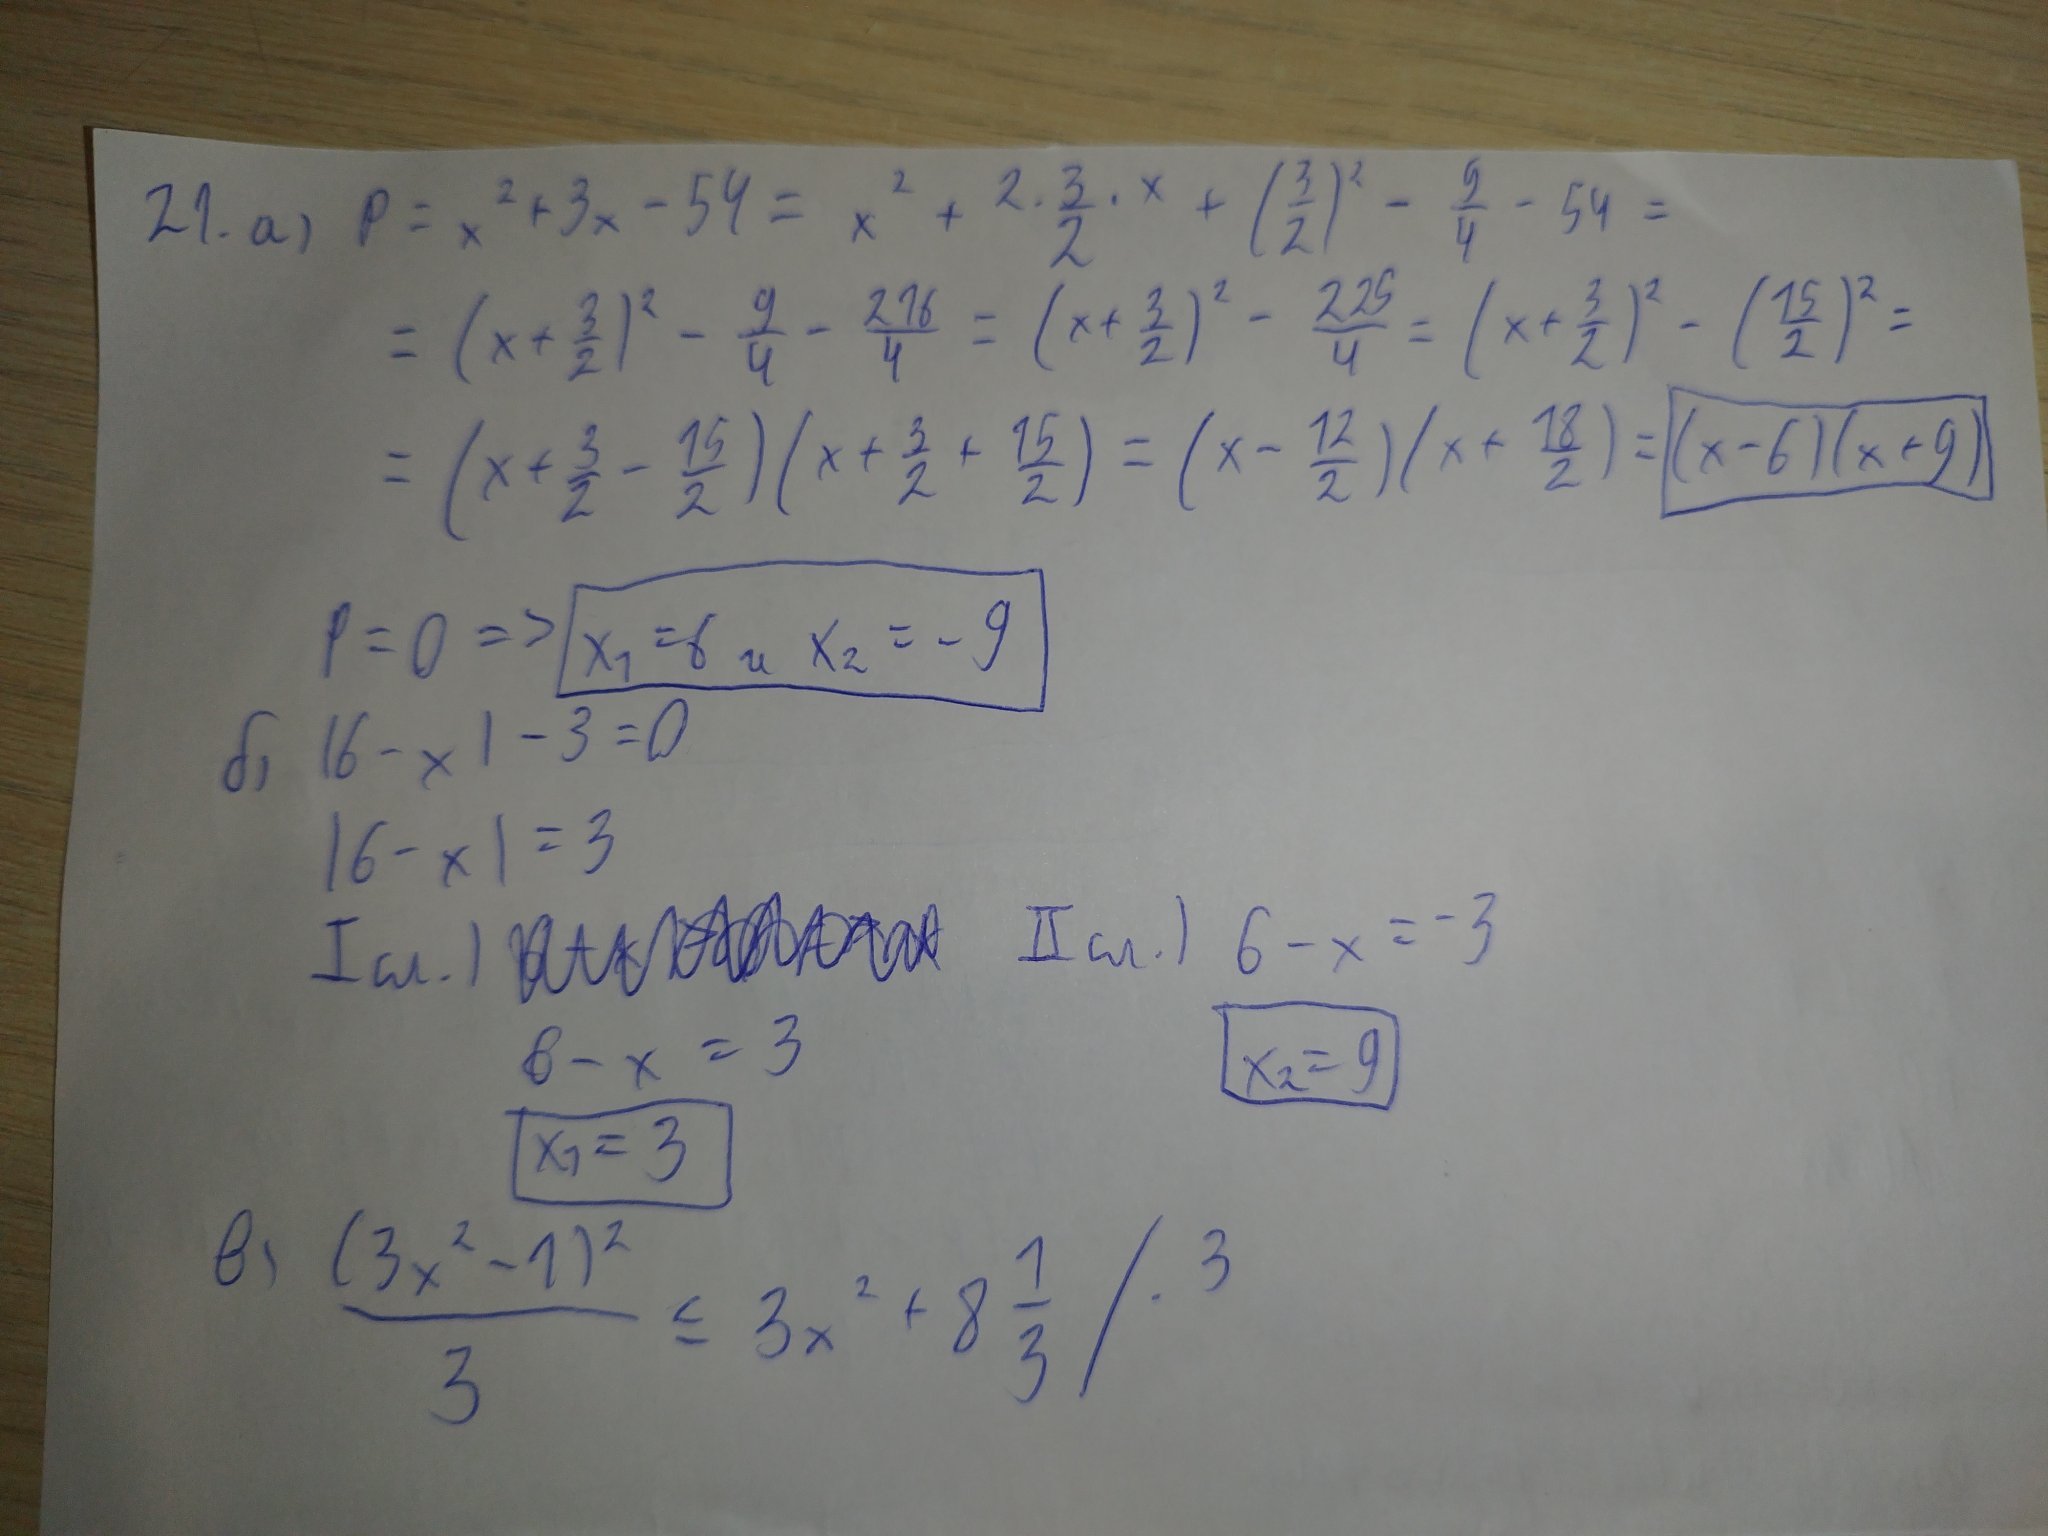 21. а) P = x² + 3x - 54 = x² + 2·3/2·x + (3/2)² - 9/4 - 54 =
= (x + 3/2)² - 9/4 - 216/4 = (x + 3/2)² - 225/4 = (x + 3/2)² - (15/2)² =
= (x + 3/2 - 15/2)(x + 3/2 + 15/2) = (x - 12/2)(x + 18/2) = (x-6)(x+9)
P = 0 => x₁ = 6 и x₂ = -9
б) |6 - x| - 3 = 0
|6 - x| = 3
I сл.) II сл.) 6 - x = -3
6 - x = 3 x₂ = 9
x₁ = 3
в) (3x² - 1)²/3 ≤ 3x² + 8 1/3 / · 3